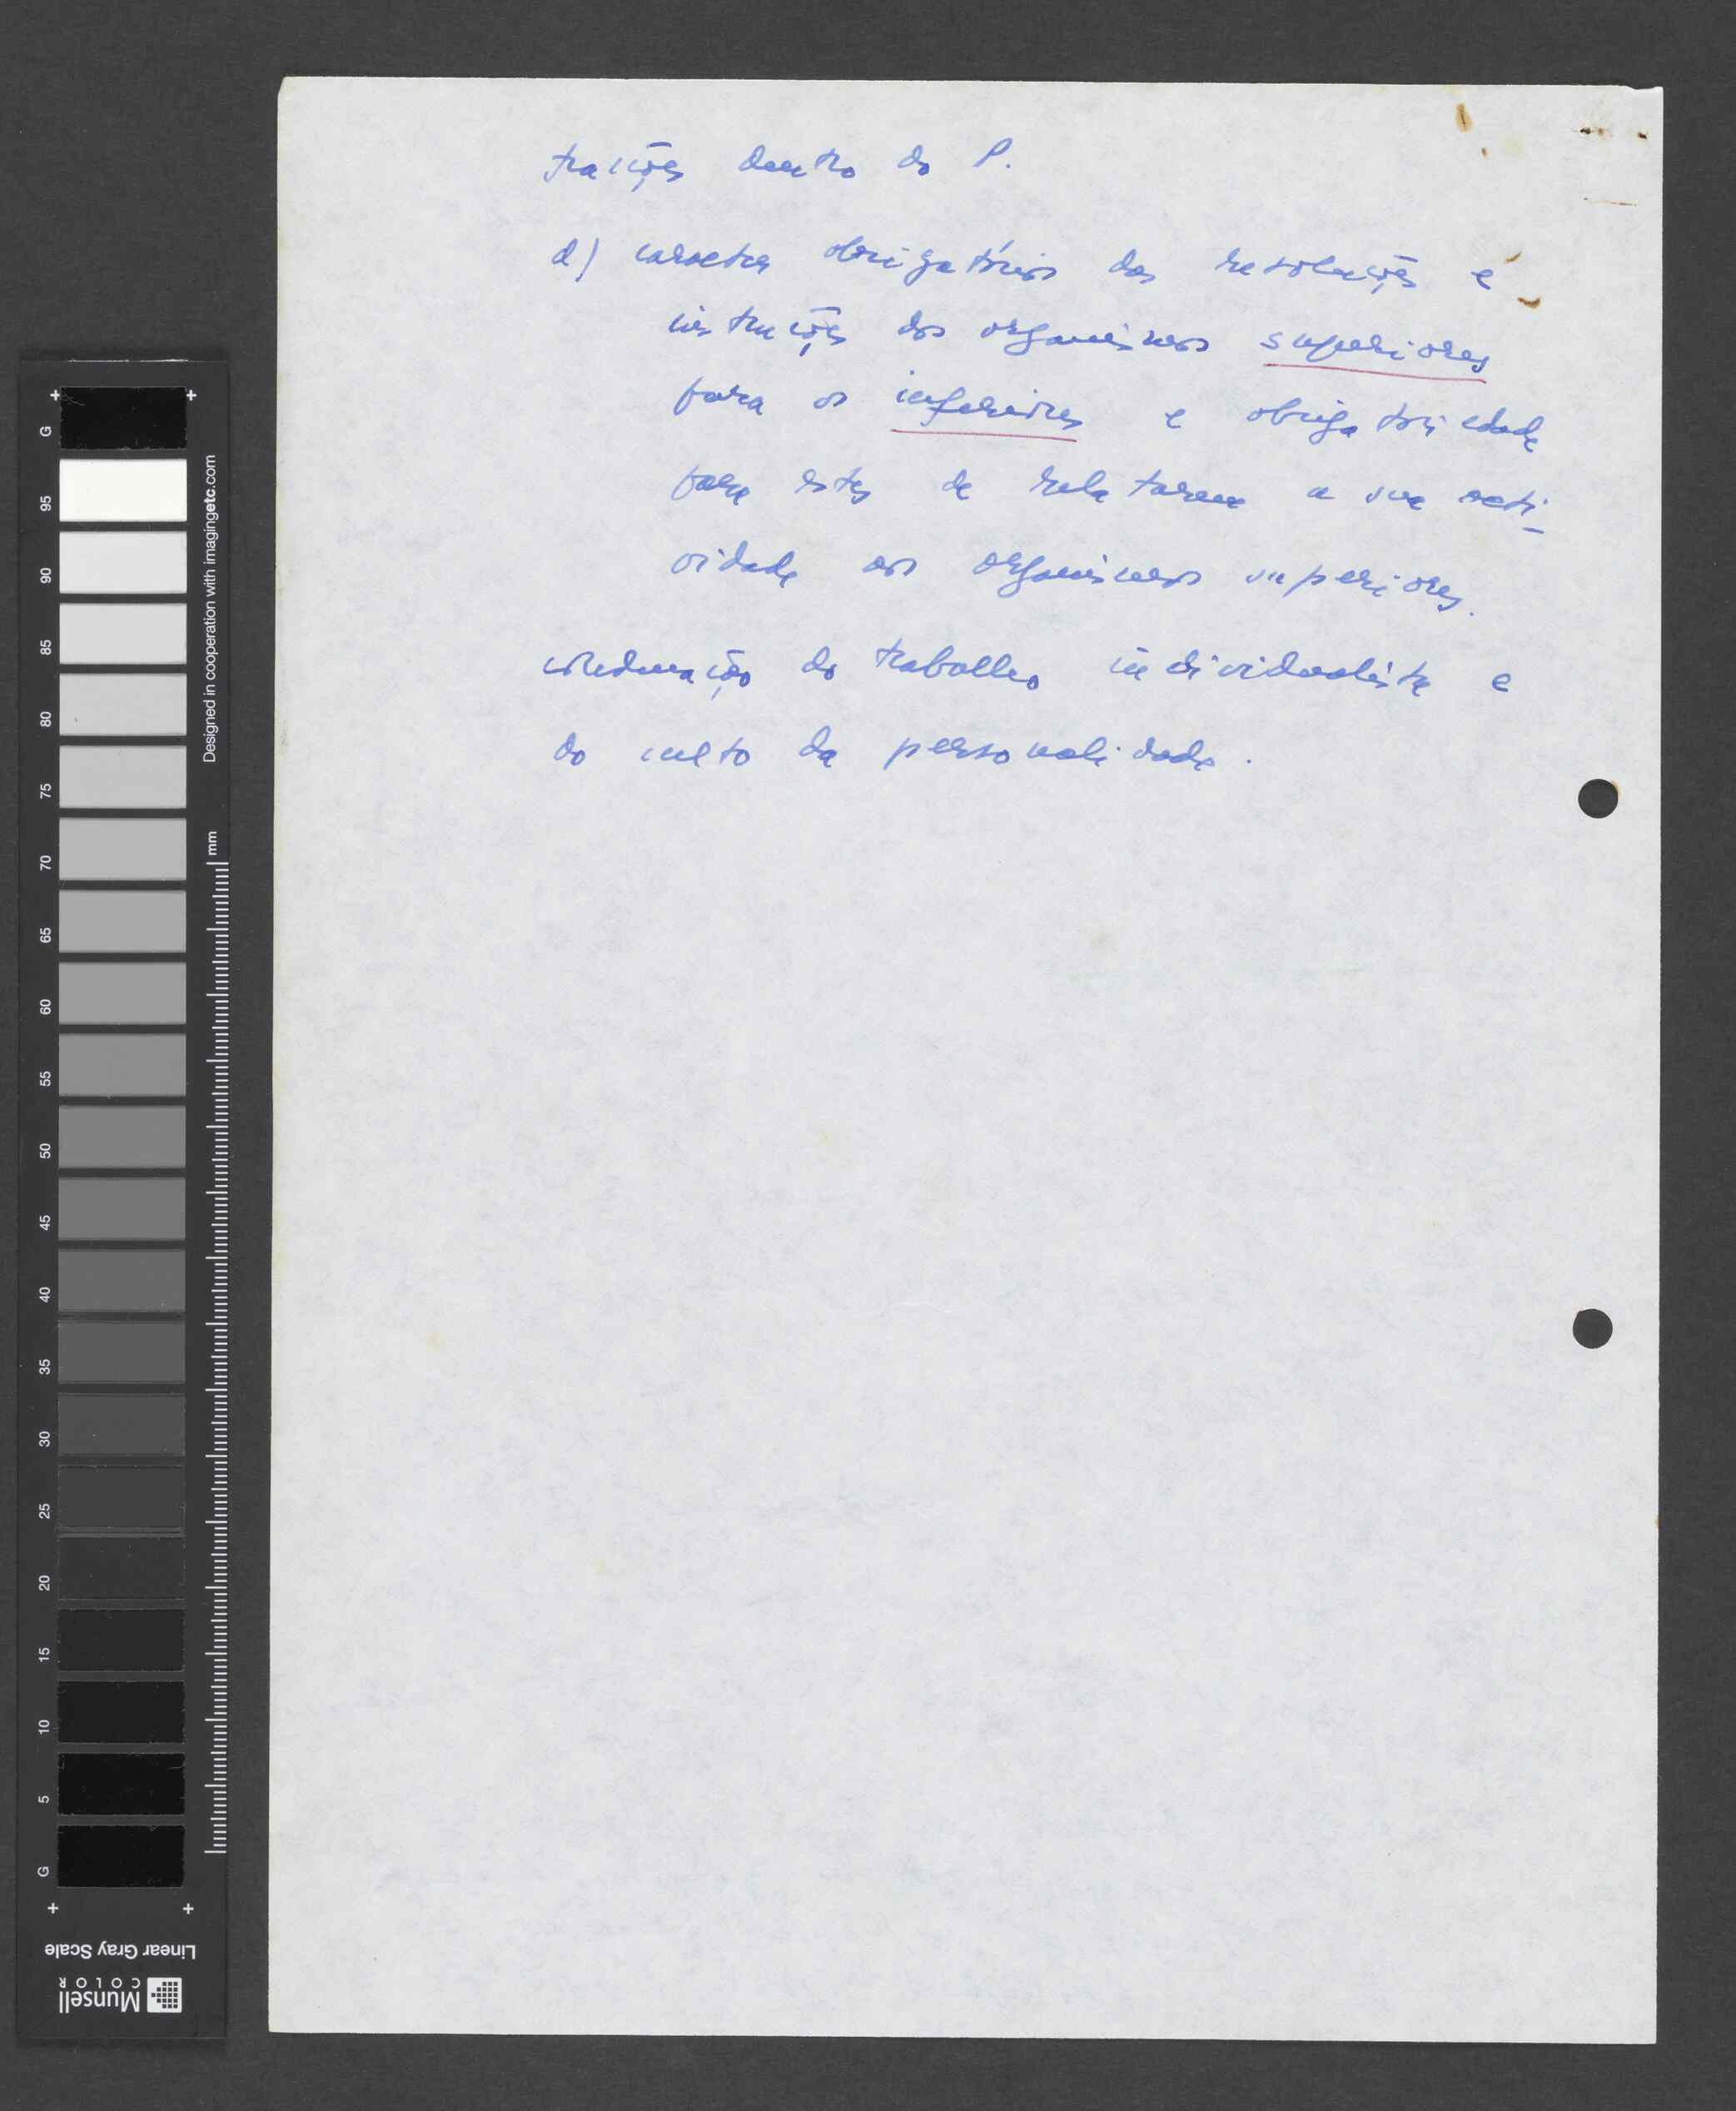 tracções dentro do P.
d) caracter obrigatório das resoluções e
instruções dos organismos superiores
para os inferiores e obrigatoriedade
para estes de relatarem a sua acti-
vidade aos organismos superiores.
condenação do trabalho individualista e
do culto da personalidade.
G 95 90 85 80 75 70 65 60 55 50 45 40 35 30 25 20 15 10 5 G
Designed in cooperation with imagingetc.com
mm
Linear Gray Scale
Munsell
COLOR